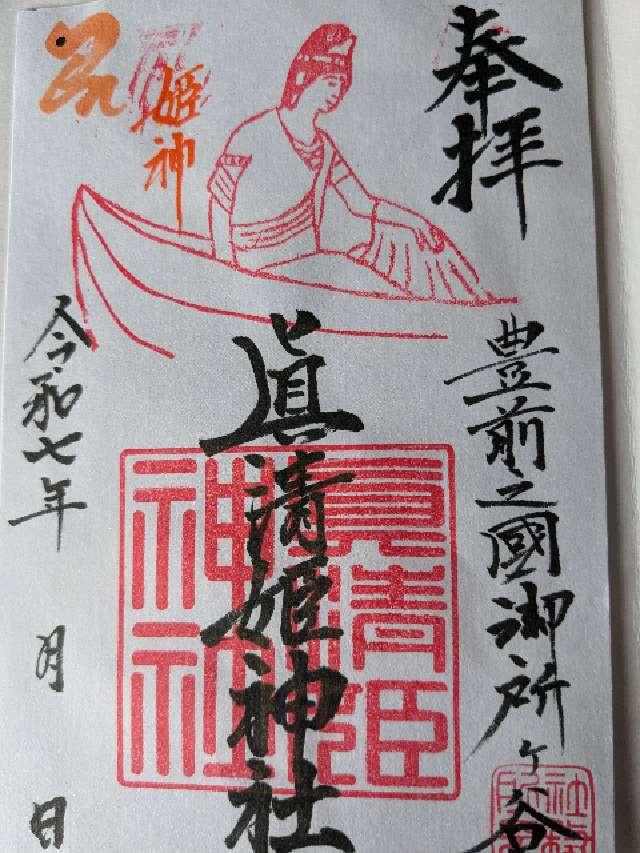 奉拝
豊前之國御所ヶ谷
眞清姫神社
眞清姫神社
姫神
令和七年　月　日